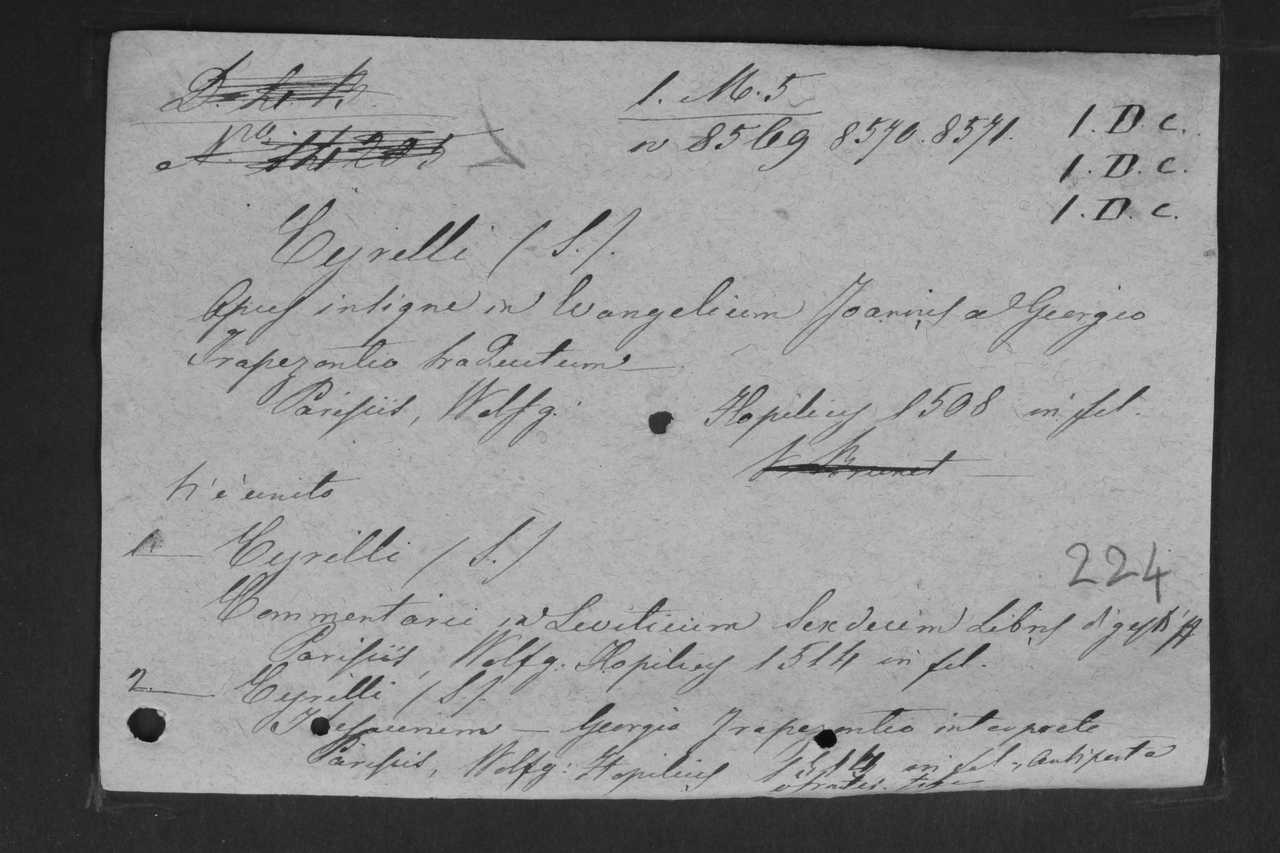 1. M. 5
n 8569 8570. 8571. 1. D. c.
1. D. c.
1. D. c.
Cyrilli (S.).
Opus insigne in Evangelium Joannis a Georgio
Trapezontio traductum
Parisiis, Wolfg. Hopilius 1508 in fol.
V. Brunet
Vi è unito
1 Cyrilli (S.)
224
Commentarii in Leviticum Sexdecim Libris digesti
Parisiis, Wolfg. Hopilius 1514 in fol.
2. Cyrilli (S.).
Thesaurum — Georgio Trapezontio interprete
Parisiis, Wolfg: Hopilius 1514 in fol. Antiporta